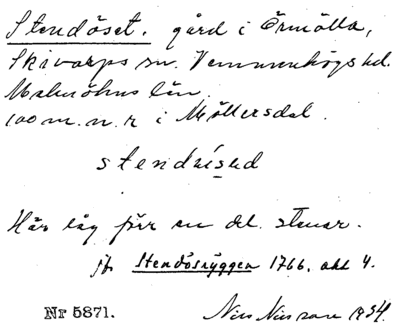 Stendöset. gård i Örmölla,
Skivarps sn. Vemmenhögs hd.
Malmöhus län.
100 m. n. r. i Möllersdal.
stendaised
Här låg förr en del stenar.
jfr Stendösryggen 1766. akt 4.
Nr 5871. Nils Nilsson 1934.